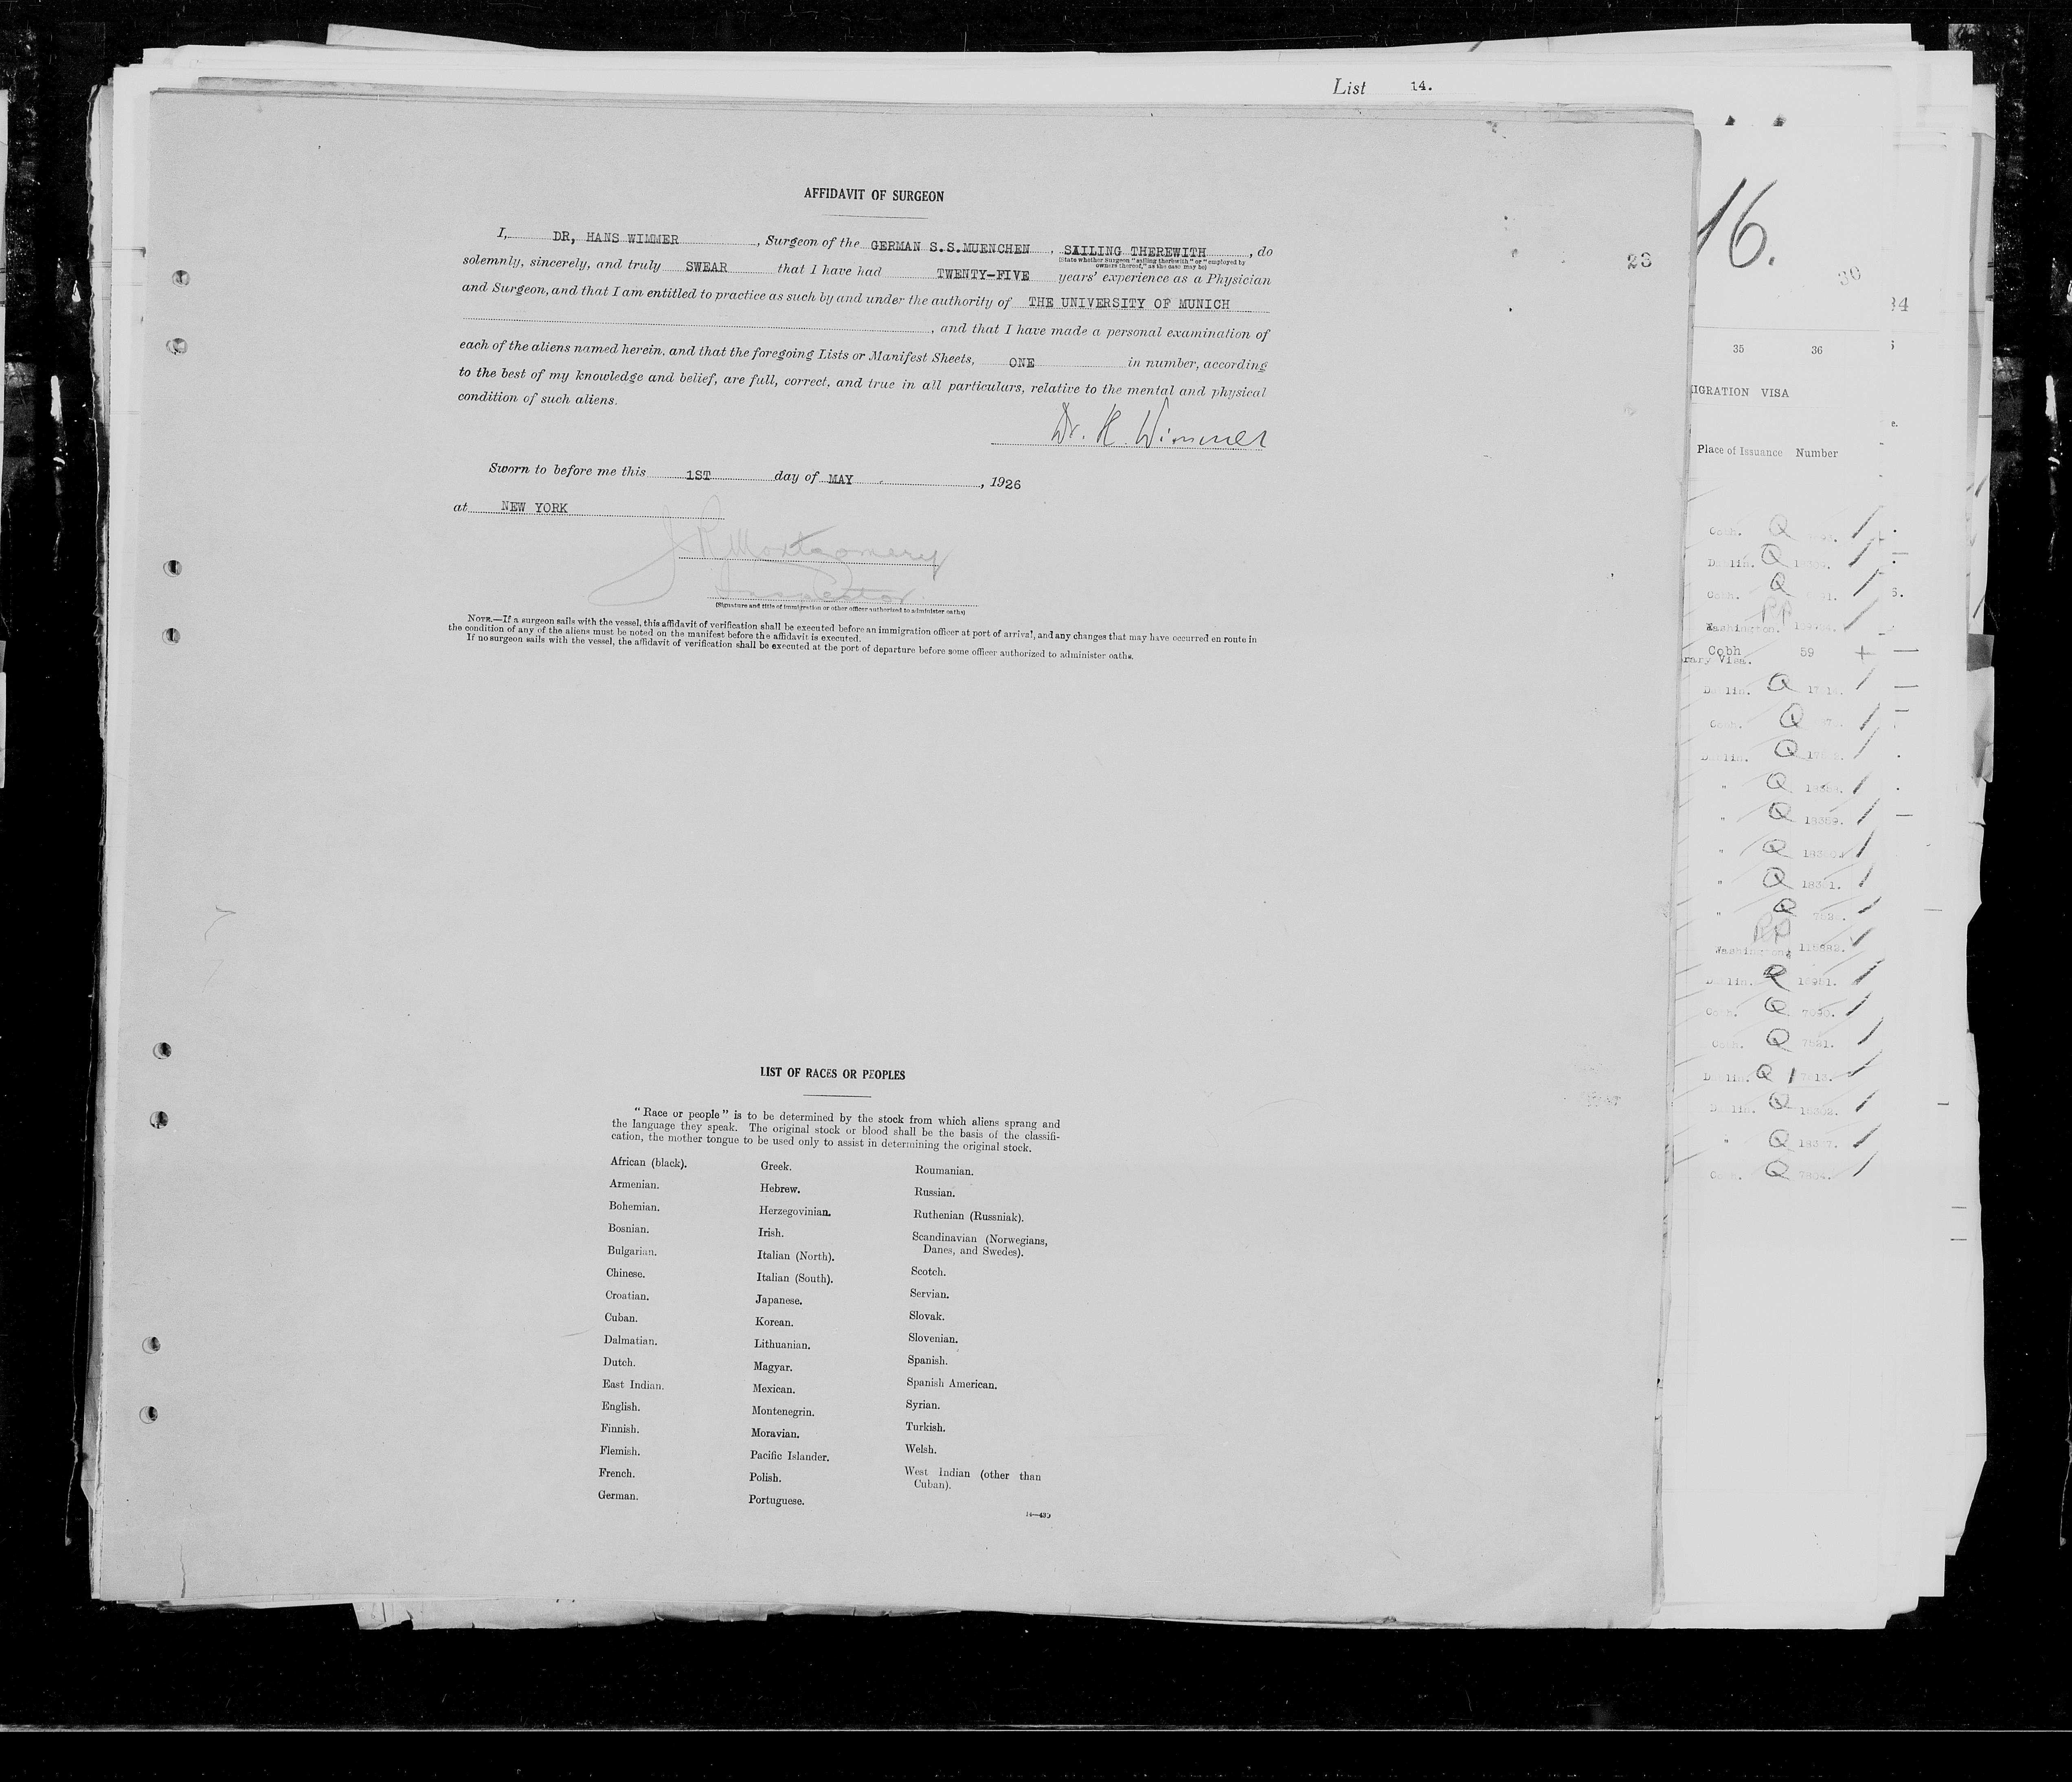 List 14.
AFFIDAVIT OF SURGEON
I, DR, HANS WIMMER , Surgeon of the GERMAN S.S.MUENCHEN , SAILING THEREWITH , do
(State whether Surgeon "sailing therewith" or "employed by
owners thereof," as the case may be)
solemnly, sincerely, and truly SWEAR that I have had TWENTY-FIVE years' experience as a Physician
and Surgeon, and that I am entitled to practice as such by and under the authority of THE UNIVERSITY OF MUNICH
, and that I have made a personal examination of
each of the aliens named herein, and that the foregoing Lists or Manifest Sheets, ONE in number, according
to the best of my knowledge and belief, are full, correct, and true in all particulars, relative to the mental and physical
condition of such aliens.
Dr. H. Wimmer
Sworn to before me this 1ST day of MAY , 1926
at NEW YORK
J R Montgomery
Inspector.
(Signature and title of immigration or other officer authorized to administer oaths)
NOTE.—If a surgeon sails with the vessel, this affidavit of verification shall be executed before an immigration officer at port of arrival, and any changes that may have occurred en route in
the condition of any of the aliens must be noted on the manifest before the affidavit is executed.
If no surgeon sails with the vessel, the affidavit of verification shall be executed at the port of departure before some officer authorized to administer oaths.
LIST OF RACES OR PEOPLES
"Race or people" is to be determined by the stock from which aliens sprang and
the language they speak. The original stock or blood shall be the basis of the classifi-
cation, the mother tongue to be used only to assist in determining the original stock.
African (black).
Armenian.
Bohemian.
Bosnian.
Bulgarian.
Chinese.
Croatian.
Cuban.
Dalmatian.
Dutch.
East Indian.
English.
Finnish.
Flemish.
French.
German.
Greek.
Hebrew.
Herzegovinian.
Irish.
Italian (North).
Italian (South).
Japanese.
Korean.
Lithuanian.
Magyar.
Mexican.
Montenegrin.
Moravian.
Pacific Islander.
Polish.
Portuguese.
Roumanian.
Russian.
Ruthenian (Russniak).
Scandinavian (Norwegians,
Danes, and Swedes).
Scotch.
Servian.
Slovak.
Slovenian.
Spanish.
Spanish American.
Syrian.
Turkish.
Welsh.
West Indian (other than
Cuban).
23
16.
30
34
35 36
IGRATION VISA
Place of Issuance Number
Cobh. Q
Dublin. Q
Cobh. Q
Washington. PP
Cobh 59
rary Visa.
Dublin. Q
Cobh. Q
Dublin. Q
" Q
" Q 18359.
" Q
" Q
" Q
Washington PP
Dublin.
Cobh. Q
Cobh. Q
Dublin. Q
Dublin. Q
" Q
Cobh. Q